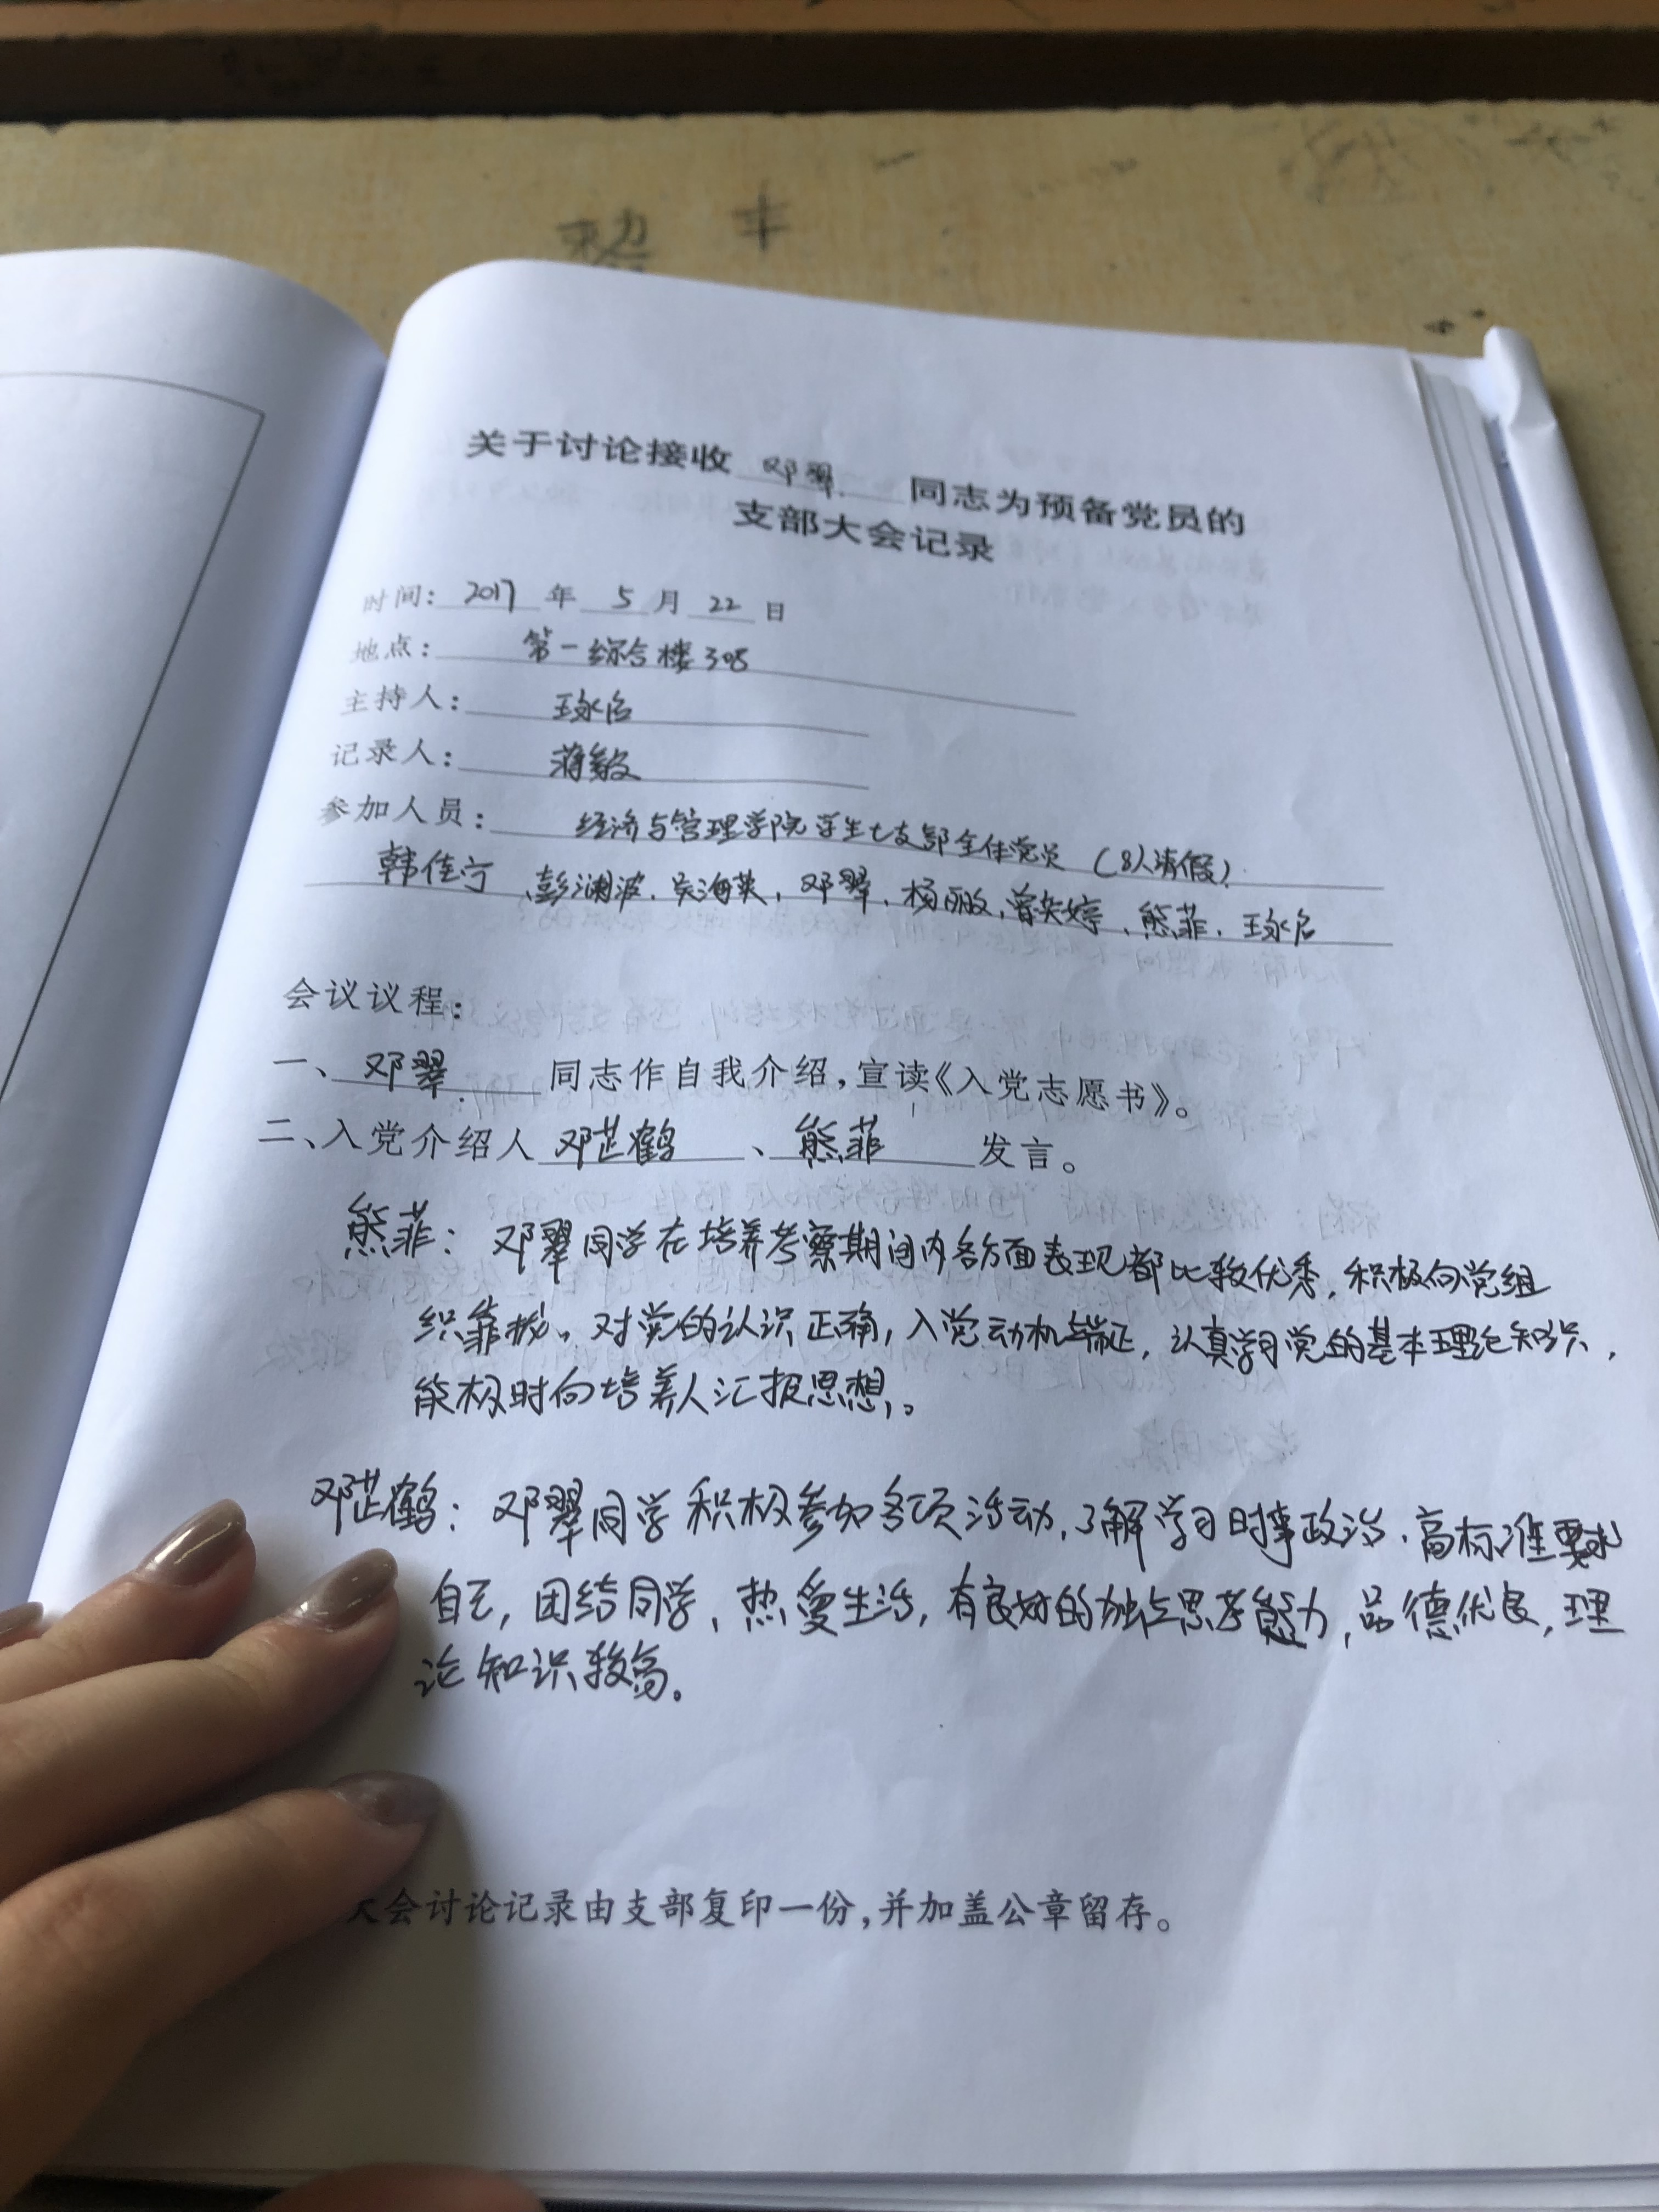 关于讨论接收 邓翠 同志为预备党员的
支部大会记录
时间: 2017 年 5 月 22 日
地点: 第一综合楼305
主持人: 王永启
记录人: 蒋毅
参加人员: 经济与管理学院学生七支部全体党员（8人请假）
韩佳宁、彭澜波、吴海英、邓翠、杨丽敏、曾英婷、熊菲、王永启
会议议程:
一、邓翠 同志作自我介绍,宣读《入党志愿书》。
二、入党介绍人 邓芷鹤、熊菲 发言。
熊菲: 邓翠同学在培养考察期间内各方面表现都比较优秀,积极向党组
织靠拢。对党的认识正确,入党动机端正,认真学习党的基本理论知识,
能极时向培养人汇报思想。
邓芷鹤: 邓翠同学积极参加各项活动,了解学习时事政治.高标准要求
自己,团结同学,热爱生活,有良好的独立思考能力,品德优良,理
论知识较高。
大会讨论记录由支部复印一份,并加盖公章留存。